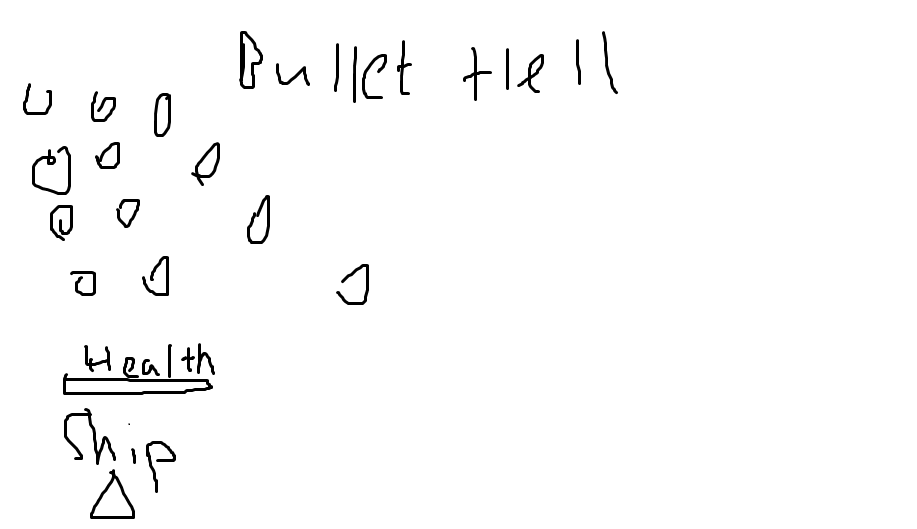 Bullet Hell
Health
Ship